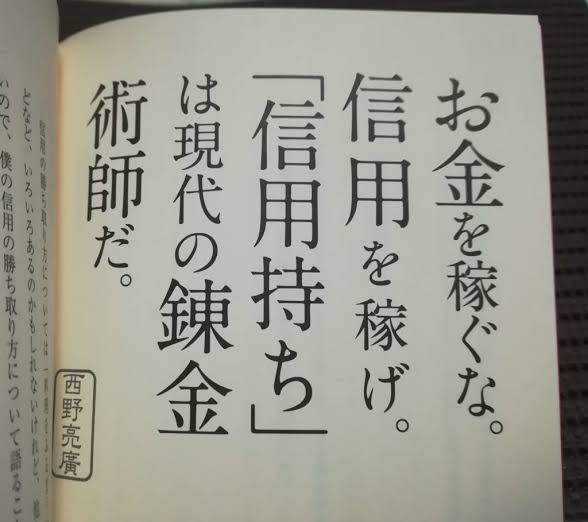 お金を稼ぐな。
信用を稼げ。
「信用持ち」
は現代の錬金
術師だ。
西野亮廣
どなど、いろいろあるのかもしれないけれど、
ので、僕の信用の勝ち取り方について語るこ